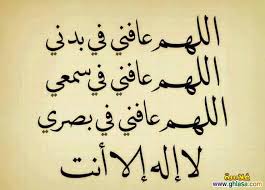 اللهم عافني في بدني
اللهم عافني في سمعي
اللهم عافني في بصري
لا إله إلا أنت
www.ghlasa.com